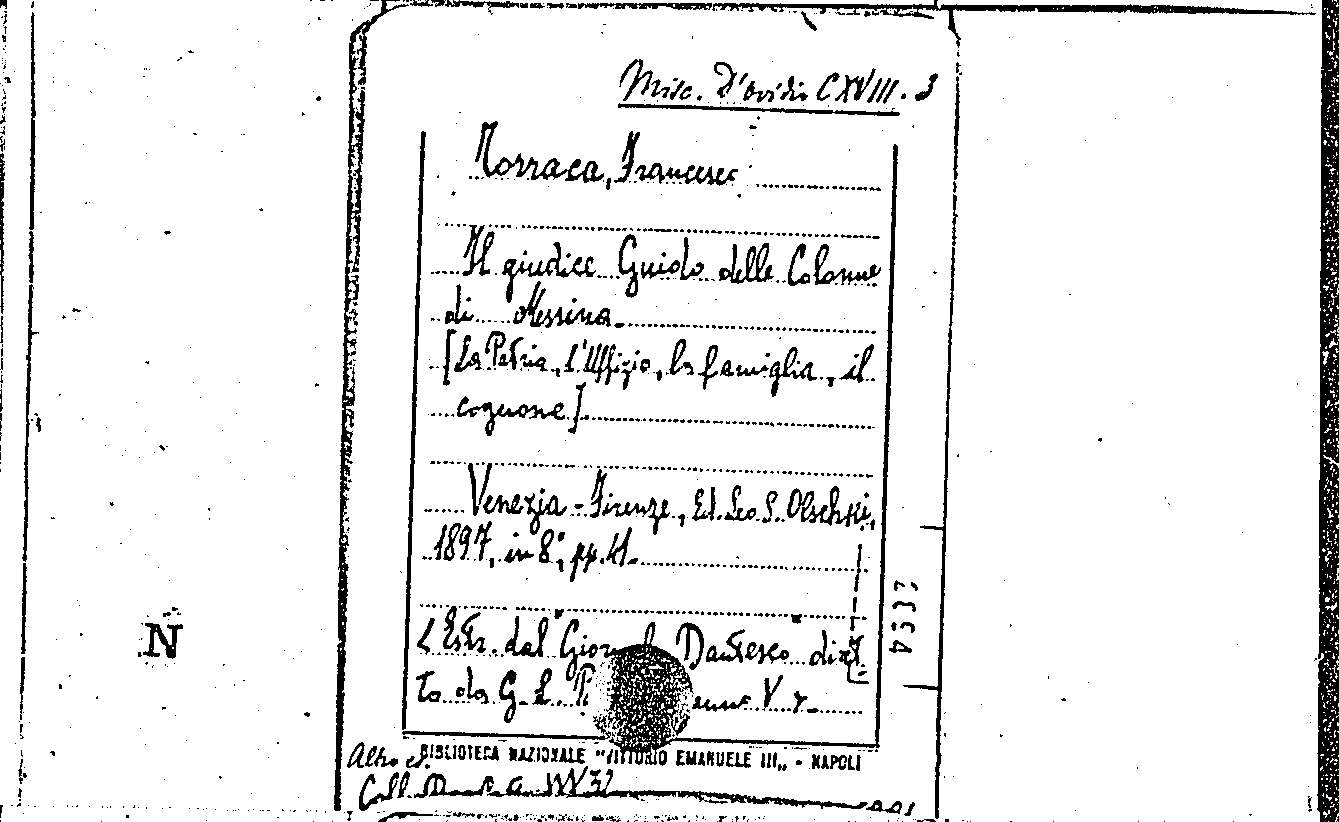 Misc. D'Ovidio CXVIII. 3
Torraca, Francesco
Il giudice Guido delle Colonne
di Messina.
[La Patria, l'Uffizio, la famiglia, il
cognome].
Venezia - Firenze, Ed. Leo S. Olschki,
1897, in 8°, pp. 41.
(Estr. dal "Giornale Dantesco" diret
to da G. L. V
BIBLIOTECA NAZIONALE "VITTORIO EMANUELE III" - NAPOLI
Altro es.
Coll.
N